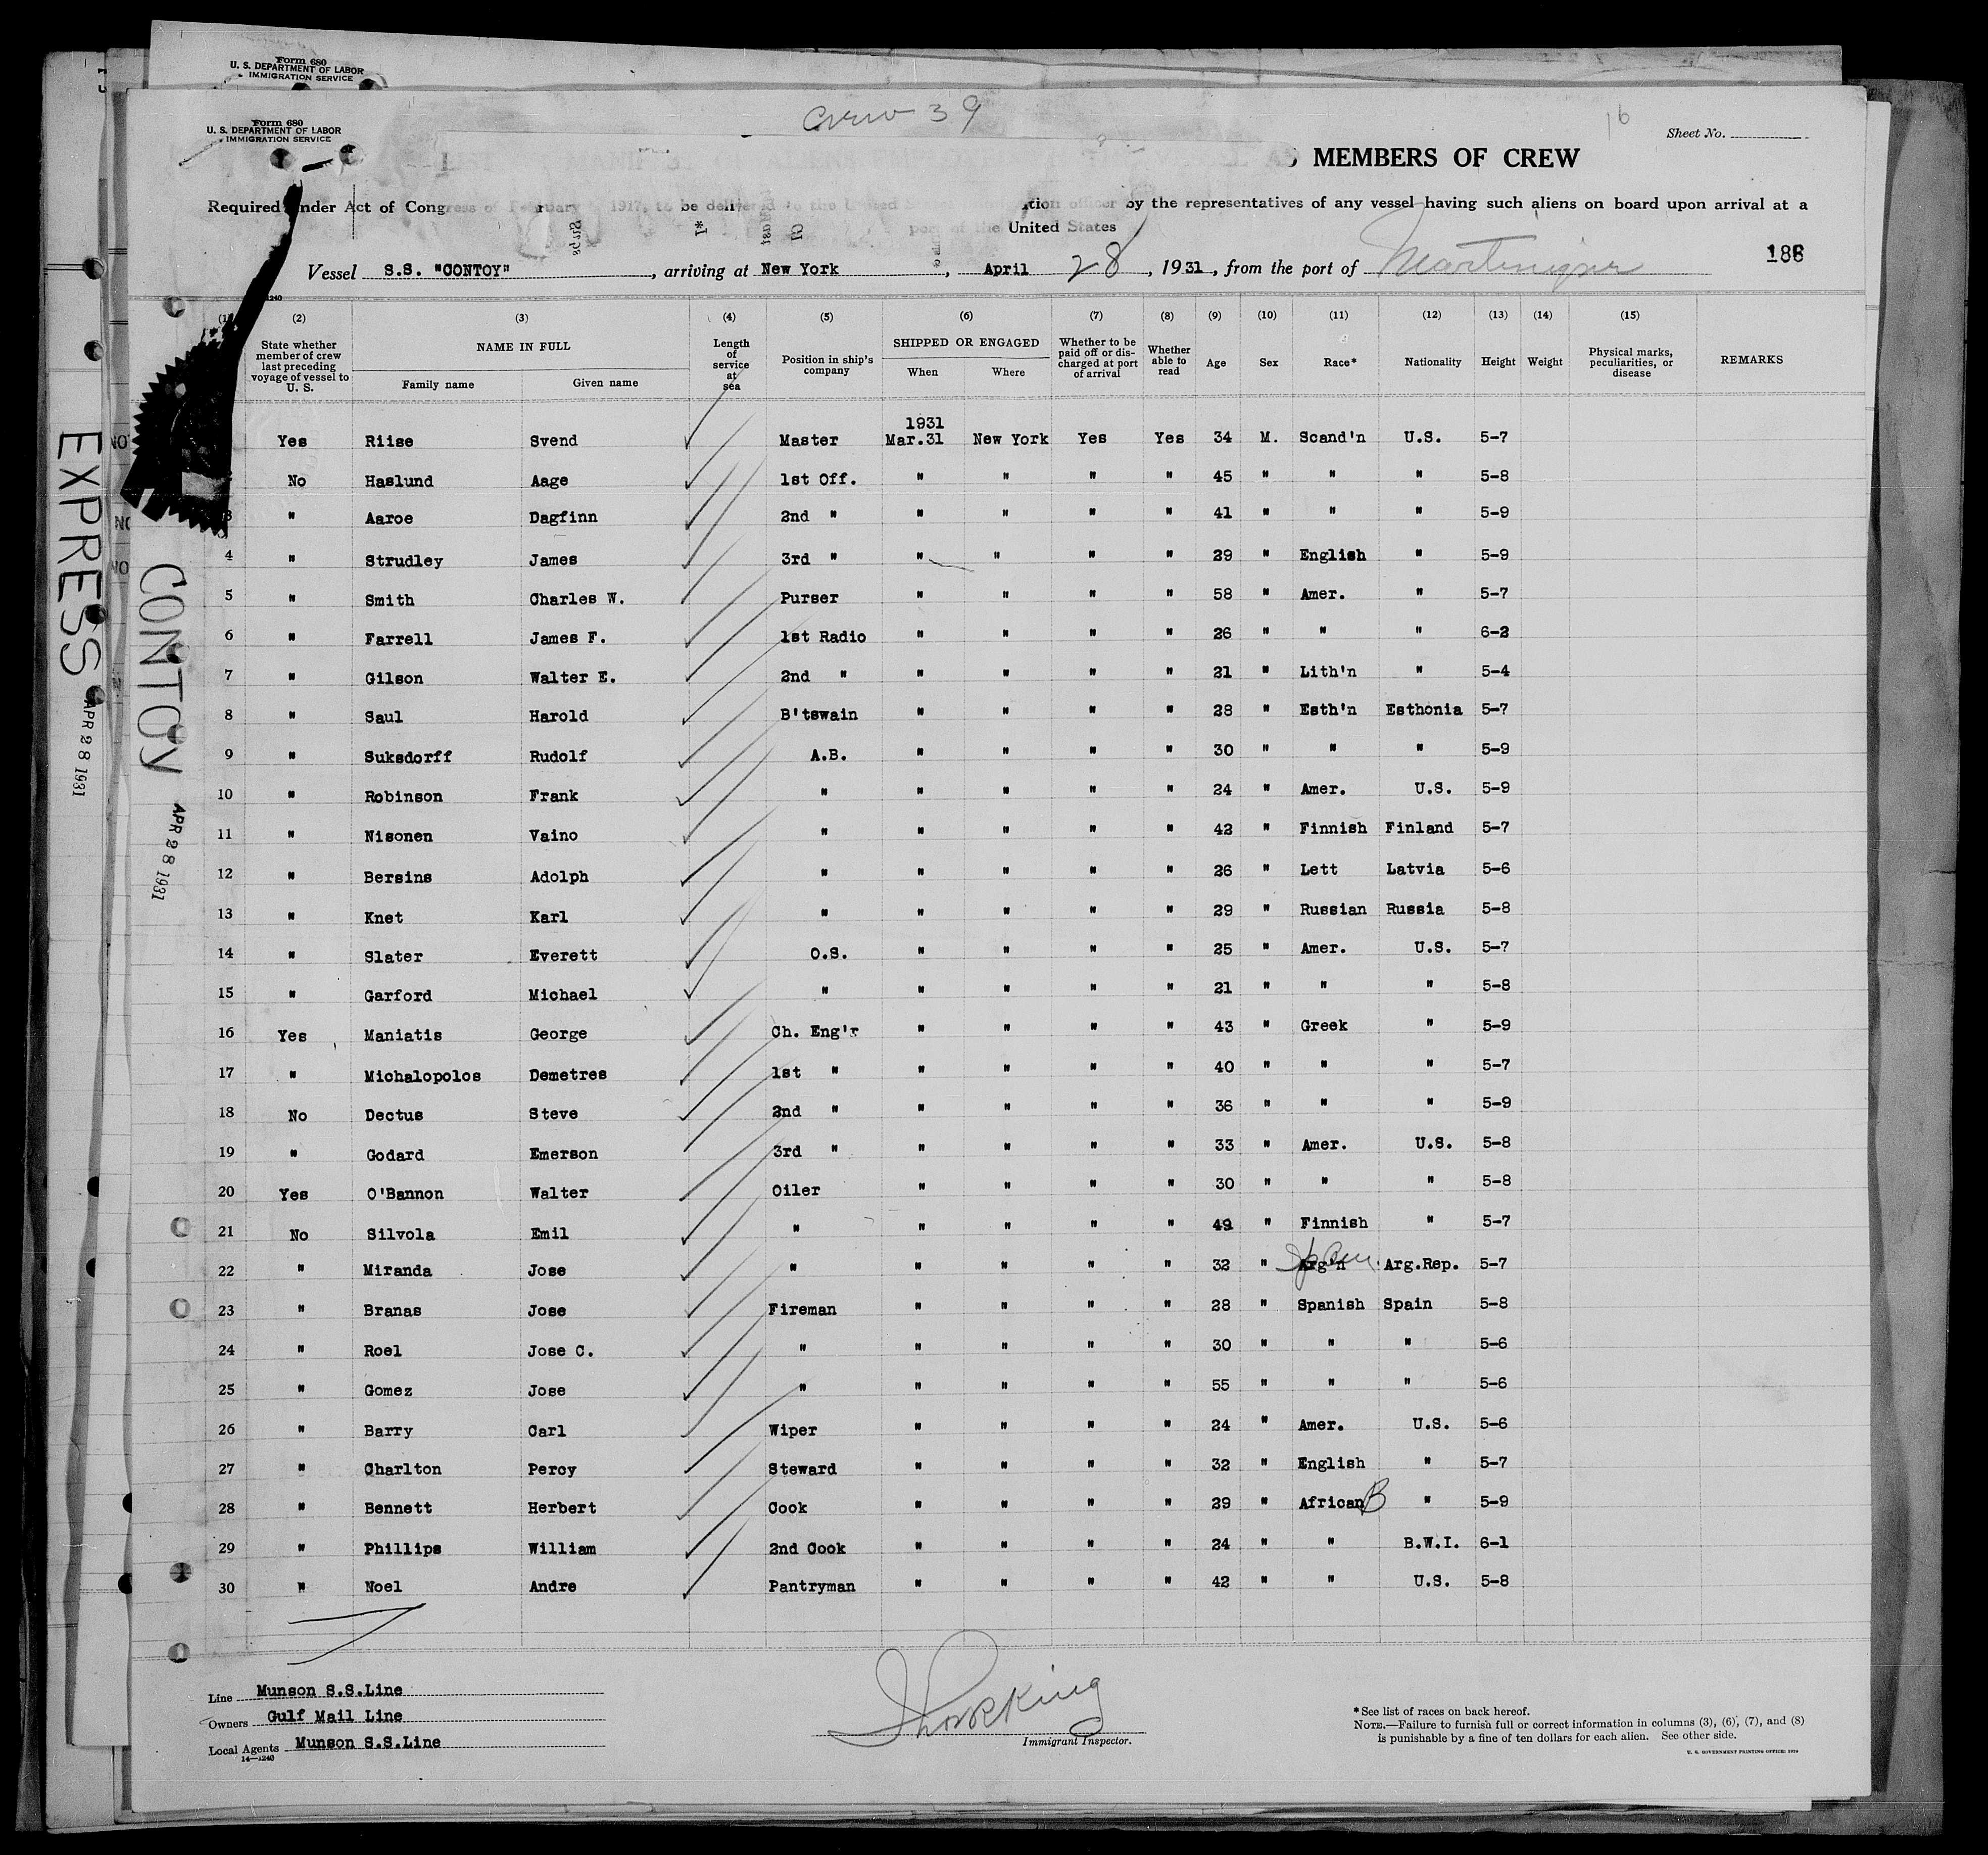 Form 680
U. S. DEPARTMENT OF LABOR
IMMIGRATION SERVICE
Form 680
U. S. DEPARTMENT OF LABOR
IMMIGRATION SERVICE
Crew 39
16
Sheet No.
MEMBERS OF CREW
Required under Act of Congress of February 1917, to be delivered to the United officer by the representatives of any vessel having such aliens on board upon arrival at a
port of the United States
Vessel S.S. "CONTOY", arriving at New York, April 28, 1931, from the port of Martinique
186
(2) (3) (4) (5) (6) (7) (8) (9) (10) (11) (12) (13) (14) (15)
State whether member of crew last preceding voyage of vessel to U. S. NAME IN FULL Family name Given name Length of service at sea Position in ship's company SHIPPED OR ENGAGED When Where Whether to be paid off or discharged at port of arrival Whether able to read Age Sex Race* Nationality Height Weight Physical marks, peculiarities, or disease REMARKS
1931
Yes Riise Svend Master Mar.31 New York Yes Yes 34 M. Scand'n U.S. 5-7
No Haslund Aage 1st Off. " " " " 45 " " " 5-8
3 " Aaroe Dagfinn 2nd " " " " " 41 " " " 5-9
4 " Strudley James 3rd " " " " " 29 " English " 5-9
5 " Smith Charles W. Purser " " " " 58 " Amer. " 5-7
6 " Farrell James F. 1st Radio " " " " 26 " " " 6-2
7 " Gilson Walter E. 2nd " " " " " 21 " Lith'n " 5-4
8 " Saul Harold B'tswain " " " " 28 " Esth'n Esthonia 5-7
9 " Suksdorff Rudolf A.B. " " " " 30 " " " 5-9
10 " Robinson Frank " " " " " 24 " Amer. U.S. 5-9
11 " Nisonen Vaino " " " " " 42 " Finnish Finland 5-7
12 " Bersins Adolph " " " " " 26 " Lett Latvia 5-6
13 " Knet Karl " " " " " 29 " Russian Russia 5-8
14 " Slater Everett O.S. " " " " 25 " Amer. U.S. 5-7
15 " Garford Michael " " " " " 21 " " " 5-8
16 Yes Maniatis George Ch. Eng'r " " " " 43 " Greek " 5-9
17 " Michalopolos Demetres 1st " " " " " 40 " " " 5-7
18 No Dectus Steve 2nd " " " " " 36 " " " 5-9
19 " Godard Emerson 3rd " " " " " 33 " Amer. U.S. 5-8
20 Yes O'Bannon Walter Oiler " " " " 30 " " " 5-8
21 No Silvola Emil " " " " " 49 " Finnish " 5-7
22 " Miranda Jose " " " " " 32 " Arg'n Arg.Rep. 5-7
23 " Branas Jose Fireman " " " " 28 " Spanish Spain 5-8
24 " Roel Jose C. " " " " " 30 " " " 5-6
25 " Gomez Jose " " " " " 55 " " " 5-6
26 " Barry Carl Wiper " " " " 24 " Amer. U.S. 5-6
27 " Charlton Percy Steward " " " " 32 " English " 5-7
28 " Bennett Herbert Cook " " " " 29 " African B " 5-9
29 " Phillips William 2nd Cook " " " " 24 " " B.W.I. 6-1
30 " Noel Andre Pantryman " " " " 42 " " U.S. 5-8
Line Munson S.S.Line
Owners Gulf Mail Line
Local Agents Munson S.S.Line
14—1240
Immigrant Inspector.
*See list of races on back hereof.
NOTE.—Failure to furnish full or correct information in columns (3), (6), (7), and (8)
is punishable by a fine of ten dollars for each alien. See other side.
U. S. GOVERNMENT PRINTING OFFICE: 1929
EXPRESS
APR 28 1931
CONTOY
APR 28 1931